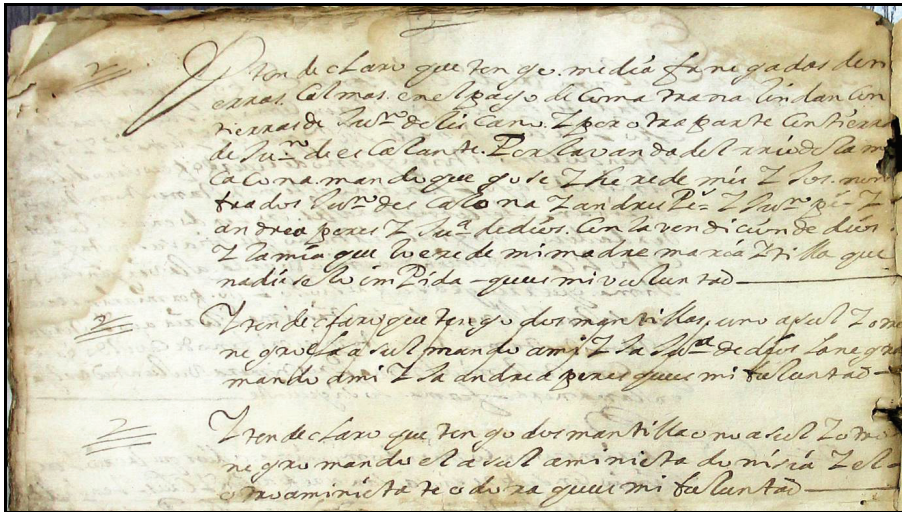 Yten declaro que tengo media fanegadas de ti
erras Calmas en el pago de Comatrana lindan con
tierras de Juº de lis cano. Y por otra parte con tierra
de Juº de escalante. Por la vanda del rrio de la
mando que gose Y herede mis Y Jos non
brados Juº de escalona Y andres Pes Y Juº pes Y
andrea peres Y Juª de dios. Con la vendicion de dios.
Y la mia que lo erede mi madre maria Ytilla que
nadie se lo imPida - que es mi voluntad
Yten declaro que tengo dos mantillas, uno asul Y otro
negro la asul mando a mi Y Ja Juª de dios la negra
mando a mi Y Ja andrea peres que es mi boluntad
Yten declaro que tengo dos mantilla uno asul Y otro
negro mando el asul a mi nieta donisia Y el
otro a mi nieta teodora que es mi boluntad